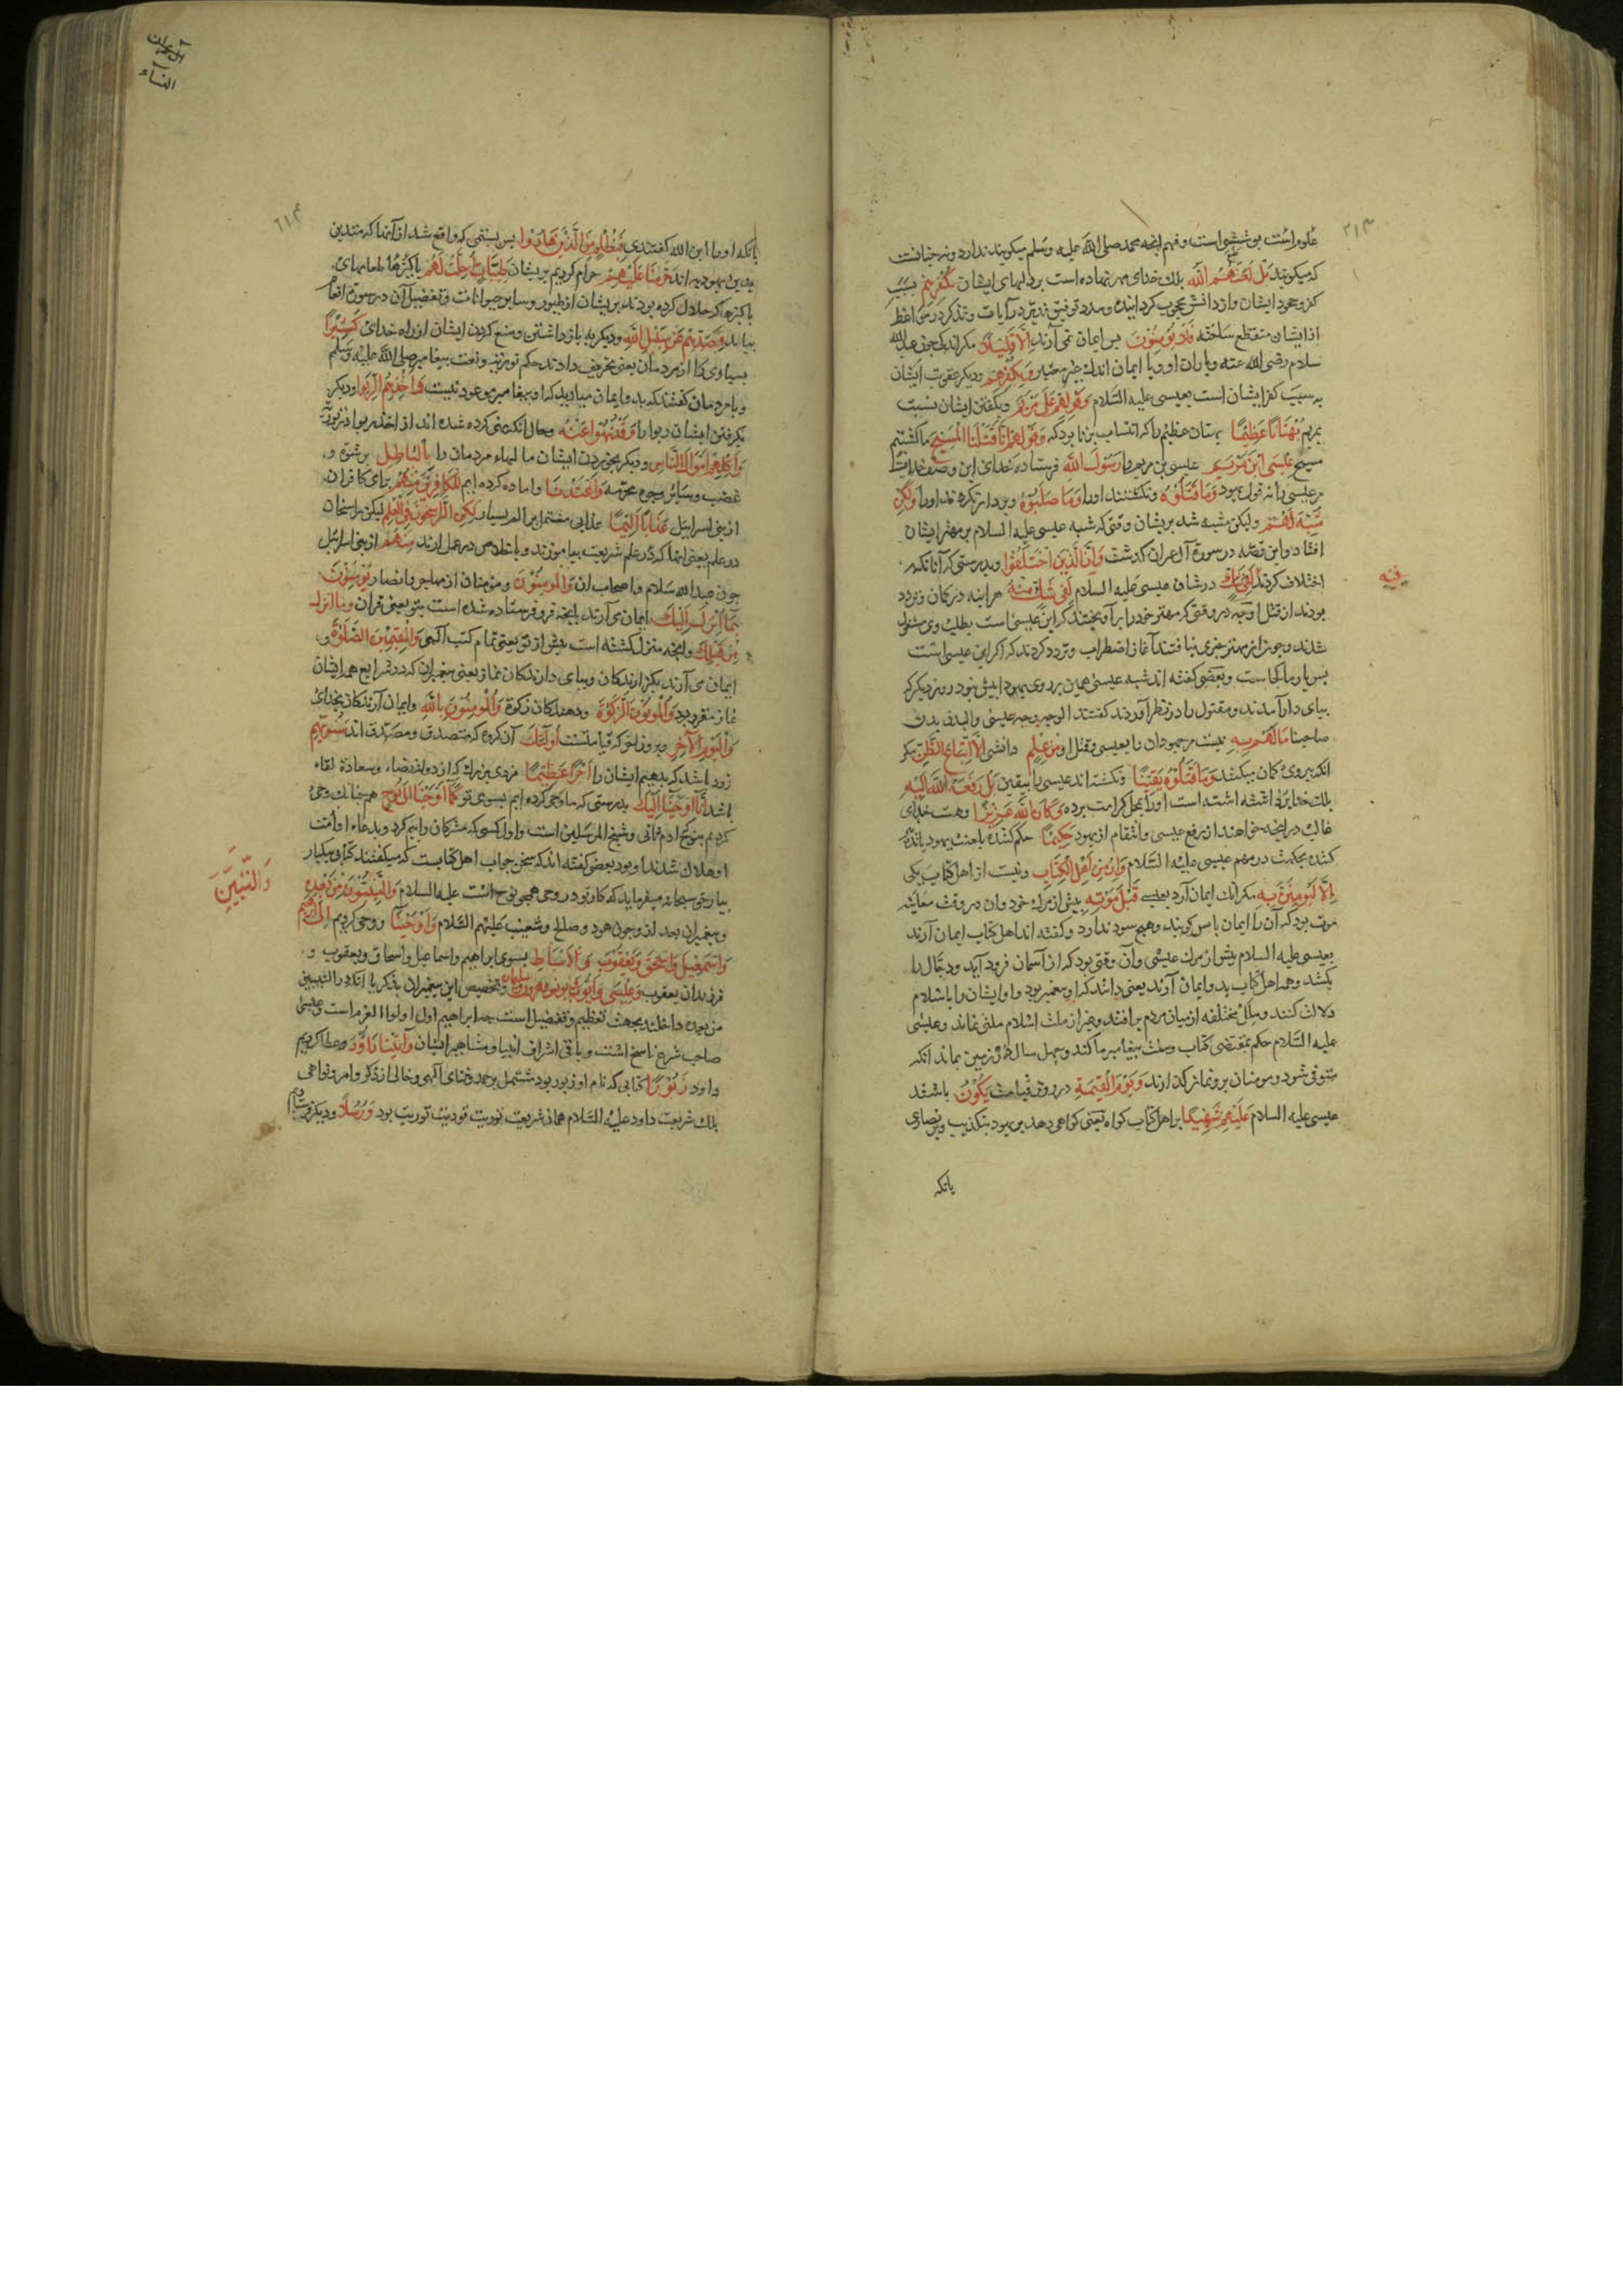 ۲۱۳
علوم است پوششی است وفهم انچه محمد صلی الله علیه وسلم میکویند ندارد ونه چنانست
که میکویند بل لعنهم الله بلک خدای مهر نهاده است بر دلهای ایشان بکفرهم بسبب
کفر وجحود ایشان واز دانش محجوب کردانیده ومدد توفیق تدبر در آیات وتذکر در مواعظ
از ایشان منقطع ساخته فلا یؤمنون پس ایمان نمی آرند الا قلیلا مکر اندکی چون عبدالله
سلام رضی الله عنه ویاران او ویا ایمان اندک غیر معتبر وبکفرهم ودیکر عقوبت ایشان
به سبب کفر ایشان است بعیسی علیه السلام وقولهم علی مریم وبکفتن ایشان نسبت
بمریم بهتانا عظیما بهتان عظیم را که انتساب بزنا بود که وقولهم انا قتلنا المسیح ما کشتیم
مسیح عیسی ابن مریم عیسی بن مریم را رسول الله فرستاده خدای این وصف خدایست
مر عیسی را نه قول یهود وما قتلوه ونکشتند اورا وما صلبوه وبر دار نکردند اورا ولکن
شبه لهم ولیکن مشبه شد بریشان وقتی که شبه عیسی علیه السلام بر مهتر ایشان
افتاد واین قصه در سورة آل عمران کذشت وان الذین اختلفوا وبدرستی که آنانکه
اختلاف کردند فیه در شان عیسی علیه السلام لفی شک منه هر اینه در کمان وتردد
فیه
بودند از قتل او چه در وقتی که مهتر خود را بر آویختند که این عیسی است بطلب وی مشغول
شدند وچون از مهتر خبری نیافتند آغاز اضطراب وتردد کردند که اکر این عیسی است
پس یار ما کجاست وبعضی کفته اند شبه عیسی همین بر روی یهودا بیش نبود روز دیکر که
بپای دار آمدند ومقتول را در نظر آوردند کفتند الوجه وجه عیسی والبدن بدن
صاحبنا ما لهم به نیست مر جهودان را بعیسی وقتل او من علم دانشی الا اتباع الظن مکر
انکه پیروی کمان میکنند وما قتلوه یقینا ونکشته اند عیسی را بیقین بل رفعه الله الیه
بلک خدای برداشته است اورا بمحل کرامت برده وکان الله عزیزا وهست خدای
غالب در انچه خواهد از رفع عیسی وانتقام از یهود حکیما حکم کننده بلعنت یهود یا تدبیر
کننده بحکمت در مهم عیسی علیه السلام وان من اهل الکتاب ونیست از اهل کتاب یکی
الا لیؤمنن به مکر انک ایمان آرد بعیسی قبل موته پیش از مرک خود وان در وقت معاینه
موت بود که آن را ایمان باس کویند وهیچ سود ندارد وکفته اند اهل کتاب ایمان آرند
بعیسی علیه السلام پیش از مرک عیسی وآن وقتی بود که از آسمان فرود آید ودجال را
بکشد وهمه اهل کتاب بدو ایمان آرند یعنی دانند که او پیغمبر بود واو ایشان را باسلام
دلالت کنند وملل مختلفه از میان مردم برافتد وغیر از ملت اسلام ملتی نماند وعیسی
علیه السلام حکم بمقتضی کتاب وسنت پیغامبر ما کند وچهل سال در زمین بماند انکه
متوفی شود ومومنان برو نماز کذارند ویوم القیمة در روز قیامت یکون باشد
عیسی علیه السلام علیهم شهیدا بر اهل کتاب کواه یعنی کواهی دهد بر یهود بتکذیب وبر نصاری
بانکه
آل عمران
النساء
۲۱۴
بانکه اورا ابن الله کفتندی فبظلم من الذین هادوا پس بستمی که واقع شد از آنها که متدین
بدین یهودیه اند حرمنا علیهم حرام کردیم بریشان طیبات احلت لهم پاکیزها طعامهای
پاکیزه که حلال کرده بودند بریشان از طیور وسایر حیوانات وتفصیل آن در سورة انعام
بیاید وبصدهم عن سبیل الله ودیکر به باز داشتن ومنع کردن ایشان از راه خدای کثیرا
بسیاری را از مردمان یعنی تحریف دادند حکم توریة ونعت پیغامبر صلی الله علیه وسلم
وبا مردمان کفتند که بدو ایمان میارید که او پیغامبر موعود نیست واخذهم الربوا ودیکر
بکرفتن ایشان ربوا را وقد نهوا عنه وحال انکه نهی کرده شده اند از اخذ ربوا در توریة
واکلهم اموال الناس ودیکر بخوردن ایشان مالهاء مردمان را بالباطل برشوت و
غضب وسایر وجوه محرمه واعتدنا واماده کرده ایم للکافرین منهم برای کافران
از بنی اسرایل عذابا الیما عذابی مشتمل بر الم بسیار لکن الراسخون فی العلم لیکن راسخان
در علم یعنی انها که در علم شریعت بیاموزند وباخلاص در عمل ارند منهم از بنی اسرائیل
چون عبدالله سلام واصحاب ان والمومنون ومومنان از مهاجر وانصار یؤمنون
بما انزل الیک ایمان می آرند بانچه فرو فرستاده شده است بتو یعنی قران وما انزل
من قبلک وانچه منزل کشته است پیش از تو یعنی تمام کتب آلهی والمقیمین الصلوة و
ایمان می آرند بکزارندکان وبپای دارندکان نماز یعنی پیغمبران که در شرایع همه ایشان
نماز مقرر بود والمؤتون الزکوة ودهندکان زکوة والمومنون بالله وایمان آرندکان بخدای
والیوم الآخر وبروز آخر که قیامتست اولئک آن کروه که متصدق ومصدق اند سنؤتیهم
زود باشد که بدهیم ایشان را اجرا عظیما مزدی بزرک که از دو رضاء وسعادة لقاء
باشد انا اوحینا الیک بدرستی که ما وحی کرده ایم بسوی تو کما اوحینا الی نوح همچنانک وحی
کردیم بنوح که ادم ثانی وشیخ المرسلین است واول کسی که مشرکان را بیم کرد وبدعاء او امت
او هلاک شدند او بود بعض کفته اند که سخن جواب اهل کتابست که میکفتند کتابی یکبار
بیار حق سبحانه میفرماید که کار تو در وحی همچو نوح است علیه السلام والنبیین من بعده
وَالنَّبِیِّنَ
وپیغمبران بعد از وچون هود وصالح وشعیب علیهم السلام واوحینا ووحی کردیم الی ابرهیم
واسمعیل واسحق ویعقوب والاسباط بسوی ابراهیم واسماعیل واسحاق ویعقوب و
فرزندان یعقوب وعیسی وایوب ویونس وهرون وسلیمان وتخصیص این پیغمبران بذکر با انکه در النبیین
من بعده داخلند بجهت تعظیم وتفضیل است چه ابراهیم اول اولوا العزم است وعیسی
صاحب شرع ناسخ است وباقی اشراف انبیا ومشاهیر ایشان وآتینا داود وعطا کردیم
داود زبورا کتابی که نام او زبور بود مشتمل بر حمد وثنای آلهی وخالی از ذکر وامر ونواهی
بلک شریعت داود علیه السلام همان شریعت توریت بود ورسلا ودیکر فرستادیم